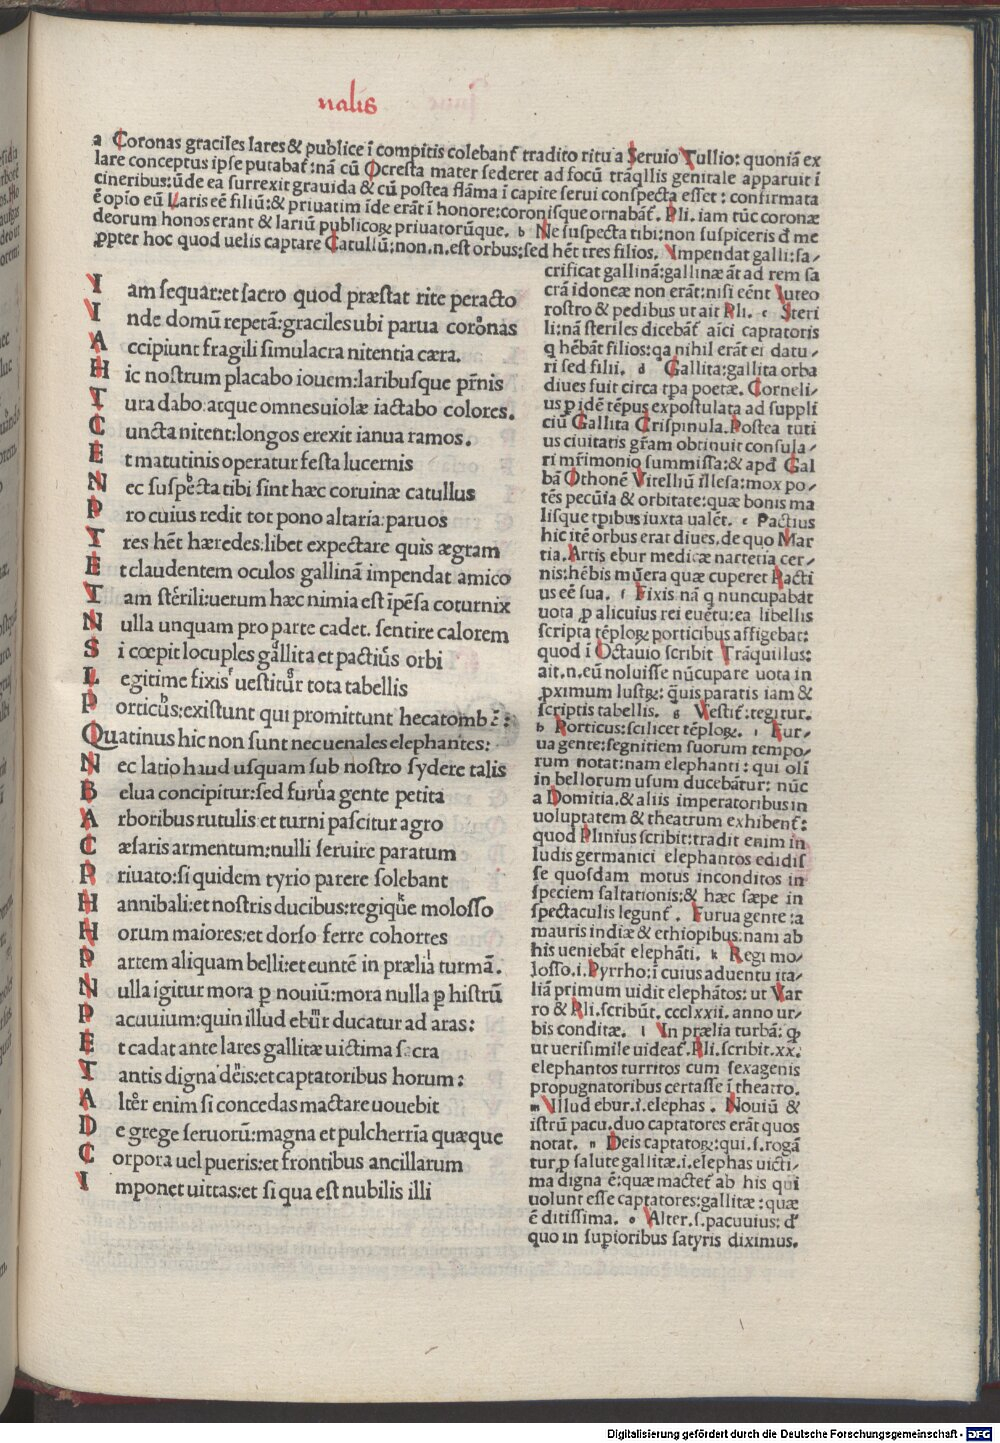 nalis
a Coronas graciles lares & publice ī compitis colebant̃ tradito ritu a Seruio Tullio: quoniā ex
lare conceptus ipse putabat̃:nā cū Ocresta mater sederet ad focū trāqllis genitale apparuit ī
cineribus:ūde ea surrexit grauida & cū postea flāma ī capite serui conspecta esset : confirmata
ē opīo eū Laris eē filiū:& priuatim īde erāt ī honore:coronisque ornabāt̃. Pli. iam tūc coronæ
deorum honos erant & lariū publicoꝝ priuatorūque. b Ne suspecta tibi:non suspiceris ꝗ me
ꝓpter hoc quod uelis captare Catullū:non.n.est orbus:sed hēt tres filios. Impendat galli:sa/
crificat gallinā:gallinæ āt ad rem sa
crā idoneæ non erāt:nisi eēnt luteo
rostro & pedibus ut ait Pli. c Steri
li:nā steriles dicebāt̃ aīci captatoris
q hēbāt filios:qa nihil erāt ei datu/
ri sed filii. d Gallita:gallita orba
diues fuit circa tꝑa poetæ. Corneli/
us ꝑ idē tēpus expostulata ad supplī
ciū Gallita Crispinula. Postea tuti
us ciuitatis grām obtinuit consula/
ri mr̄imonio summissa:& apd̄ Gal
bā Othonē Vitelliū illesa:mox po/
tēs pecūia & orbitate:quæ bonis ma
lisque tꝑibus iuxta ualēt. e Pactius
hic itē orbus erat diues, de quo Mar
tia. Artis ebur medicæ narteria cer/
nis:hēbis mūera quæ cuperet Pacti
us eē sua. f Fixis nā q nuncupabāt
uota ꝑ alicuius rei euētu:ea libellis
scripta tēploꝝ porticibus affigebāt:
quod ī Octauio scribit Trāquillus:
ait.n.eū noluisse nūcupare uota in
ꝓximum lustꝝ: q̄uis paratis iam &
scriptis tabellis. g Vestit̃:tegitur.
h Porticus:scilicet tēploꝝ. i Fur/
ua gente:segnitiem suorum tempo/
rum notat:nam elephanti: qui olī
in bellorum usum ducebātur: nūc
a Domitia.& aliis imperatoribus in
uoluptatem & theatrum exhibent̃:
quod Plinius scribit:tradit enim in
ludis germanici elephantos edidis
se quosdam motus inconditos in
speciem saltationis:& hæc sæpe in
spectaculis legunt̃. Furua gente:a
mauris indiæ & ethiopibus:nam ab
his ueniebāt elephāti. k Regi mo/
losso.i.Pyrrho:ī cuius aduentu ita/
liā primum uidit elephātos: ut Var
ro & Pli.scribūt. ccclxxii. anno ur/
bis conditæ. l In prælia turbā: ꝙ
ut uerisimile uideat̃. Pli.scribit.xx.
elephantos turritos cum sexagenis
propugnatoribus certasse ī theatro.
m Illud ebur.i.elephas . Nouiū &
istrū pacu.duo captatores erāt quos
notat. n Deis captatoꝝ:qui.s.rogā
tur ꝑ salute gallitæ.i.elephas uicti/
ma digna ē:quæ mactet̃ ab his qui
uolunt esse captatores:gallitæ:quæ
ē ditissima. o Alter.s.pacuuius: d̄
quo in suꝑioribus satyris diximus.
Iam sequar:et sacro quod præstat rite peracto
Inde domū repetā:graciles ubi parua coronas
Accipiunt fragili simulacra nitentia cæra.
Hic nostrum placabo iouem:laribusque pr̄nis
Tura dabo:atque omnes uiolæ iactabo colores.
Cuncta nitent:longos erexit ianua ramos.
Et matutinis operatur festa lucernis
Nec suspecta tibi sint hæc coruinæ catullus
Pro cuius redit tot pono altaria:paruos
Tres hēt hæredes:libet expectare quis ægram
Et claudentem oculos gallinā impendat amico
Tam sterili:uerum hæc nimia est ipēsa coturnix
Nulla unquam pro parte cadet. sentire calorem
Si cœpit locuples gallita et pactius orbi
Legitime fixis uestitur tota tabellis
Porticus:existunt qui promittunt hecatombē:
Quatinus hic non sunt nec uenales elephantes:
Nec latio haud usquam sub nostro sydere talis
Belua concipitur:sed furua gente petita
Arboribus rutulis et turni pascitur agro
Cæsaris armentum:nulli seruire paratum
Priuato:si quidem tyrio parere solebant
Hannibali:et nostris ducibus:regique molosso
Horum maiores:et dorso ferre cohortes
Partem aliquam belli:et euntē in prælia turmā.
Nulla igitur mora ꝑ nouiū:mora nulla ꝑ histrū
Pacuuium:quin illud ebur ducatur ad aras:
Et cadat ante lares gallitæ uictima sacra
Tantis digna deis:et captatoribus horum:
Alter enim si concedas mactare uouebit
De grege seruorū:magna et pulcherria quæque
Corpora uel pueris:et frontibus ancillarum
Imponet uittas:et si qua est nubilis illi
Digitalisierung gefördert durch die Deutsche Forschungsgemeinschaft - DFG